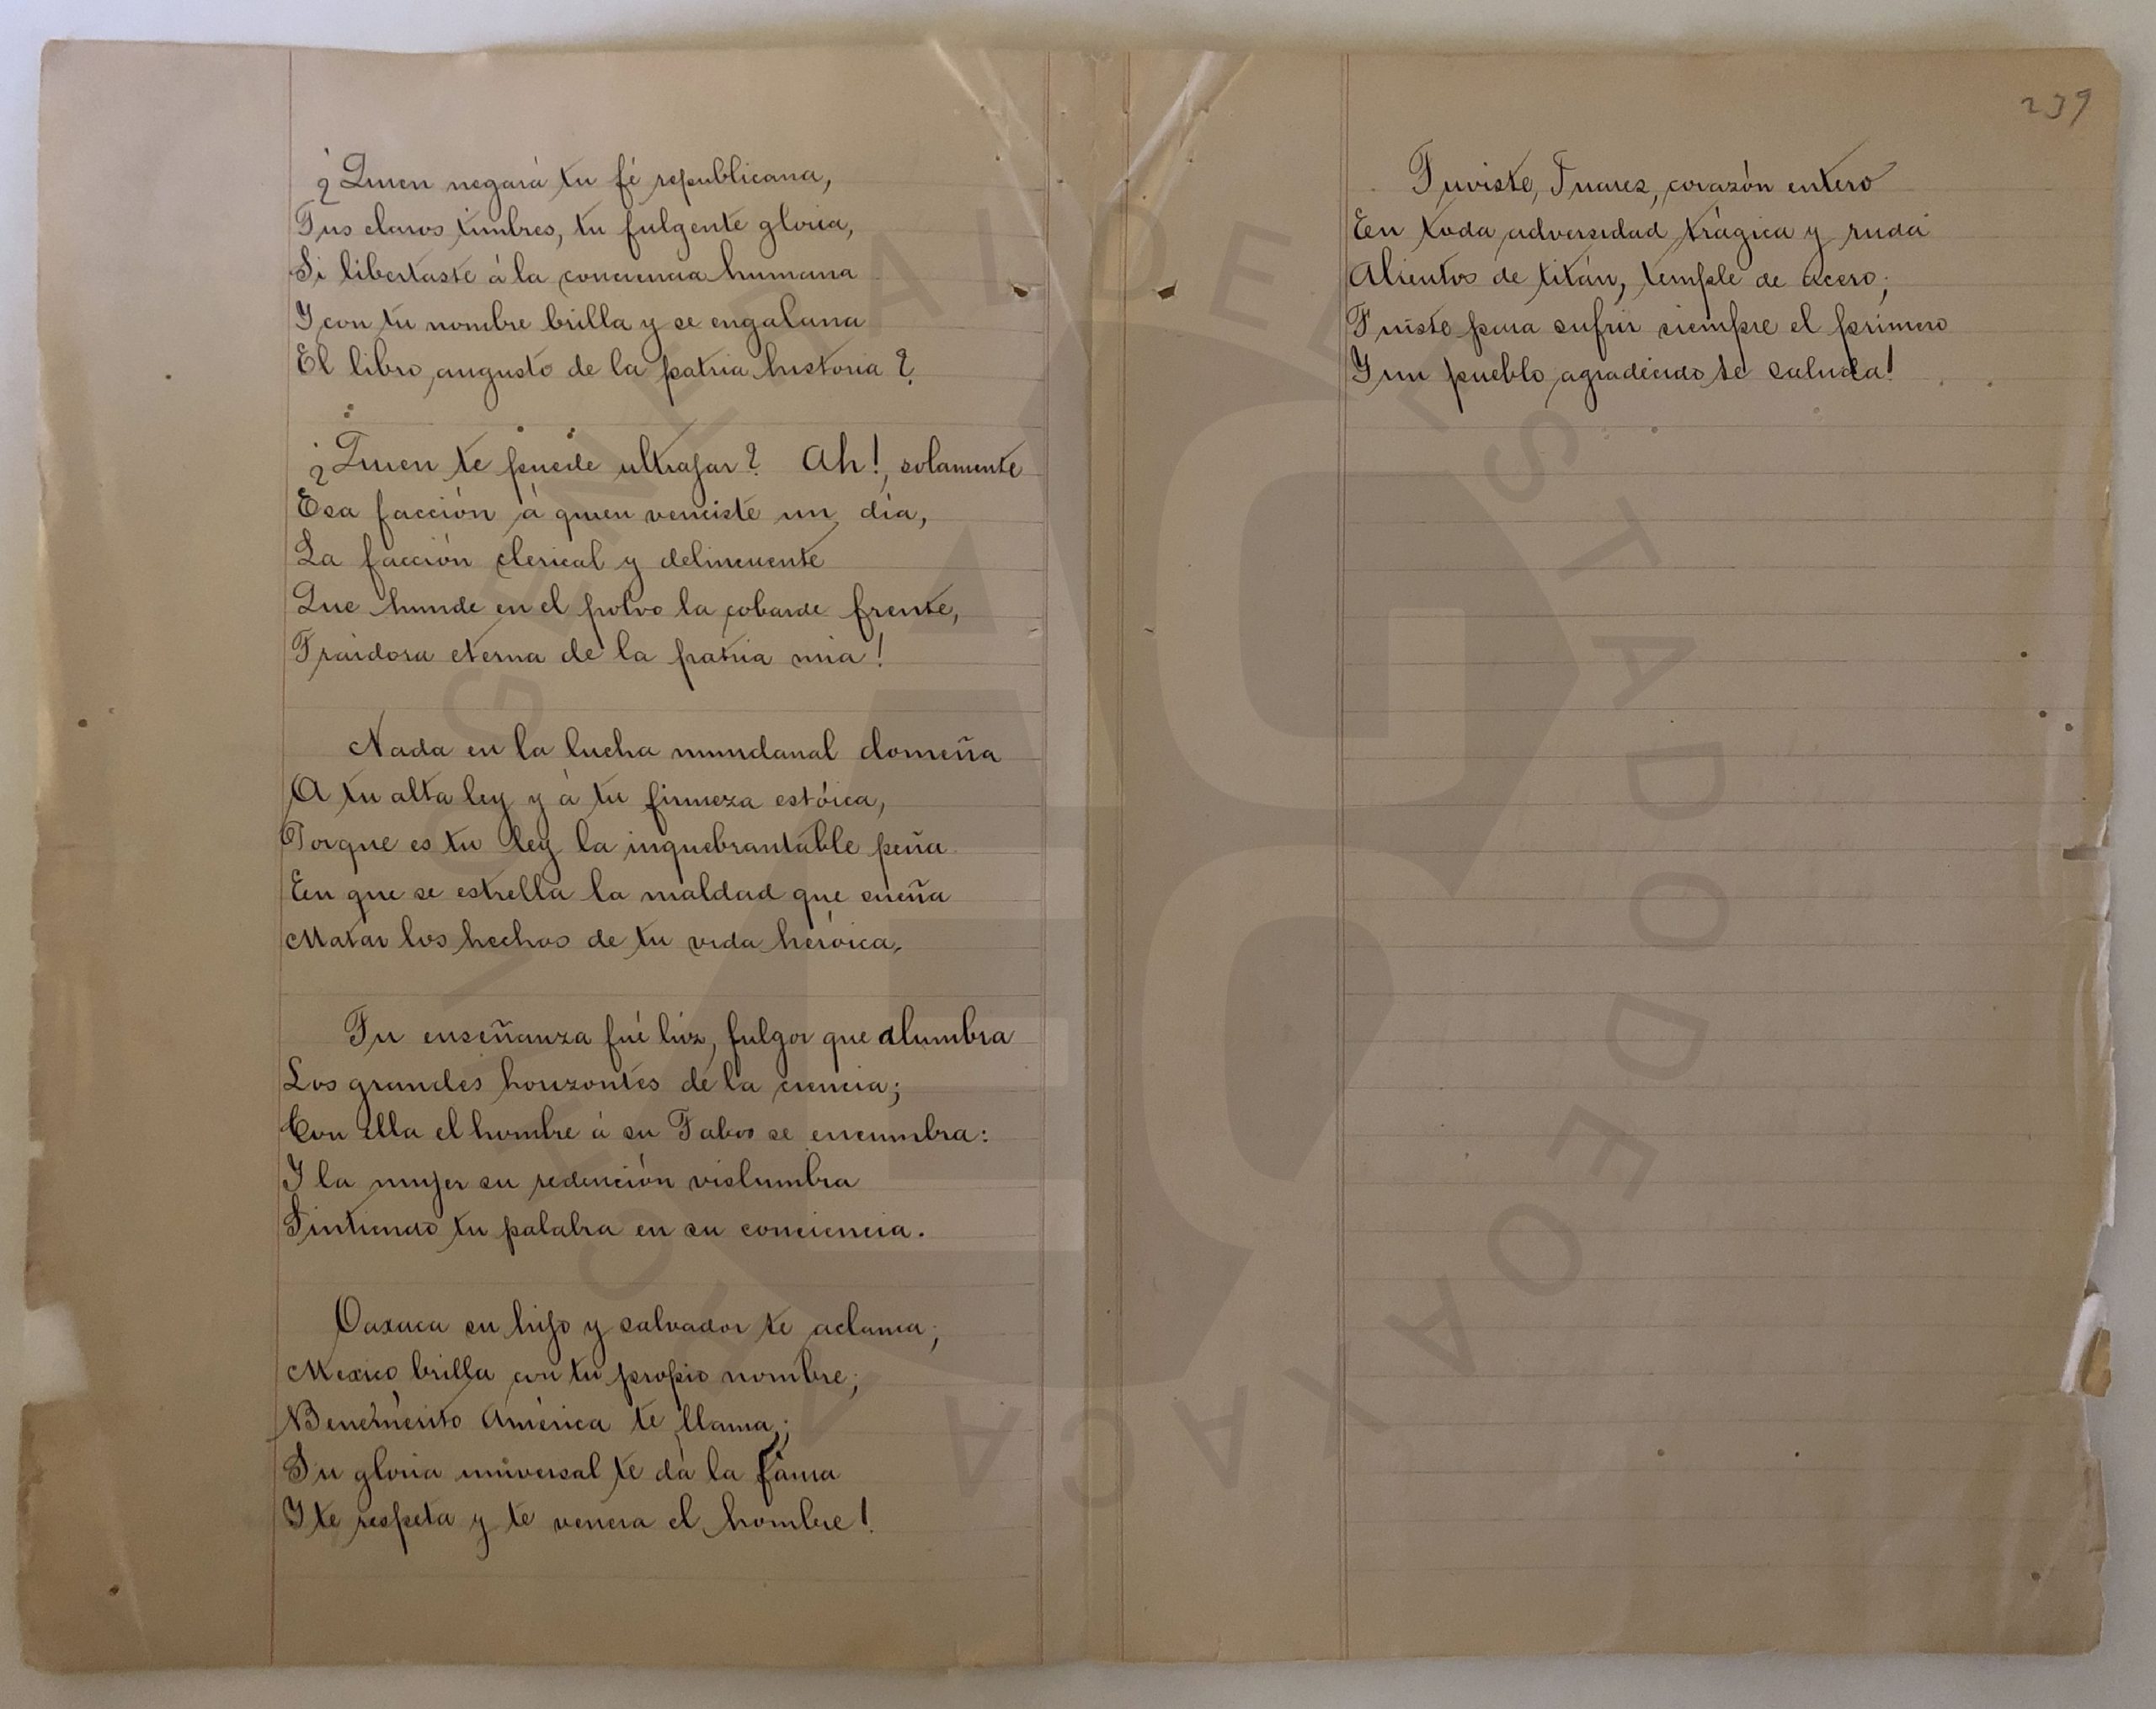 ¿Quien negará tu fé republicana,
Tus claros timbres, tu fulgente gloria,
Si libertaste á la conciencia humana
Y con tu nombre brilla y se engalana
El libro augusto de la patria historia?
¿Quien te puede ultrajar? Ah!, solamente
Esa facción á quien venciste un dia,
La facción clerical y delincuente
Que hunde en el polvo la cobarde frente,
Traidora eterna de la patria mia!
Nada en la lucha mundanal domeña
A tu alta ley y á tu firmeza estóica,
Porque es tu ley la inquebrantable peña
En que se estrella la maldad que sueña
Matar los hechos de tu vida heróica.
Tu enseñanza fué lúz, fulgor que alumbra
Los grandes horizontes de la ciencia;
Con ella el hombre á su Tabor se encumbra:
Y la mujer su redención vislumbra
Sintiendo tu palabra en su conciencia.
Oaxaca su hijo y salvador te aclama;
Mexico brilla con tu propio nombre;
Benemérito América te llama;
Su gloria universal te dá la fama
Y te respeta y te venera el hombre!
239
Tuviste, Juarez, corazón entero
En toda adversidad trágica y ruda
Alientos de titán, temple de acero;
Fuiste para sufrir siempre el primero
Y un pueblo agradecido te saluda!
ARCHIVO GENERAL DEL ESTADO DE OAXACA